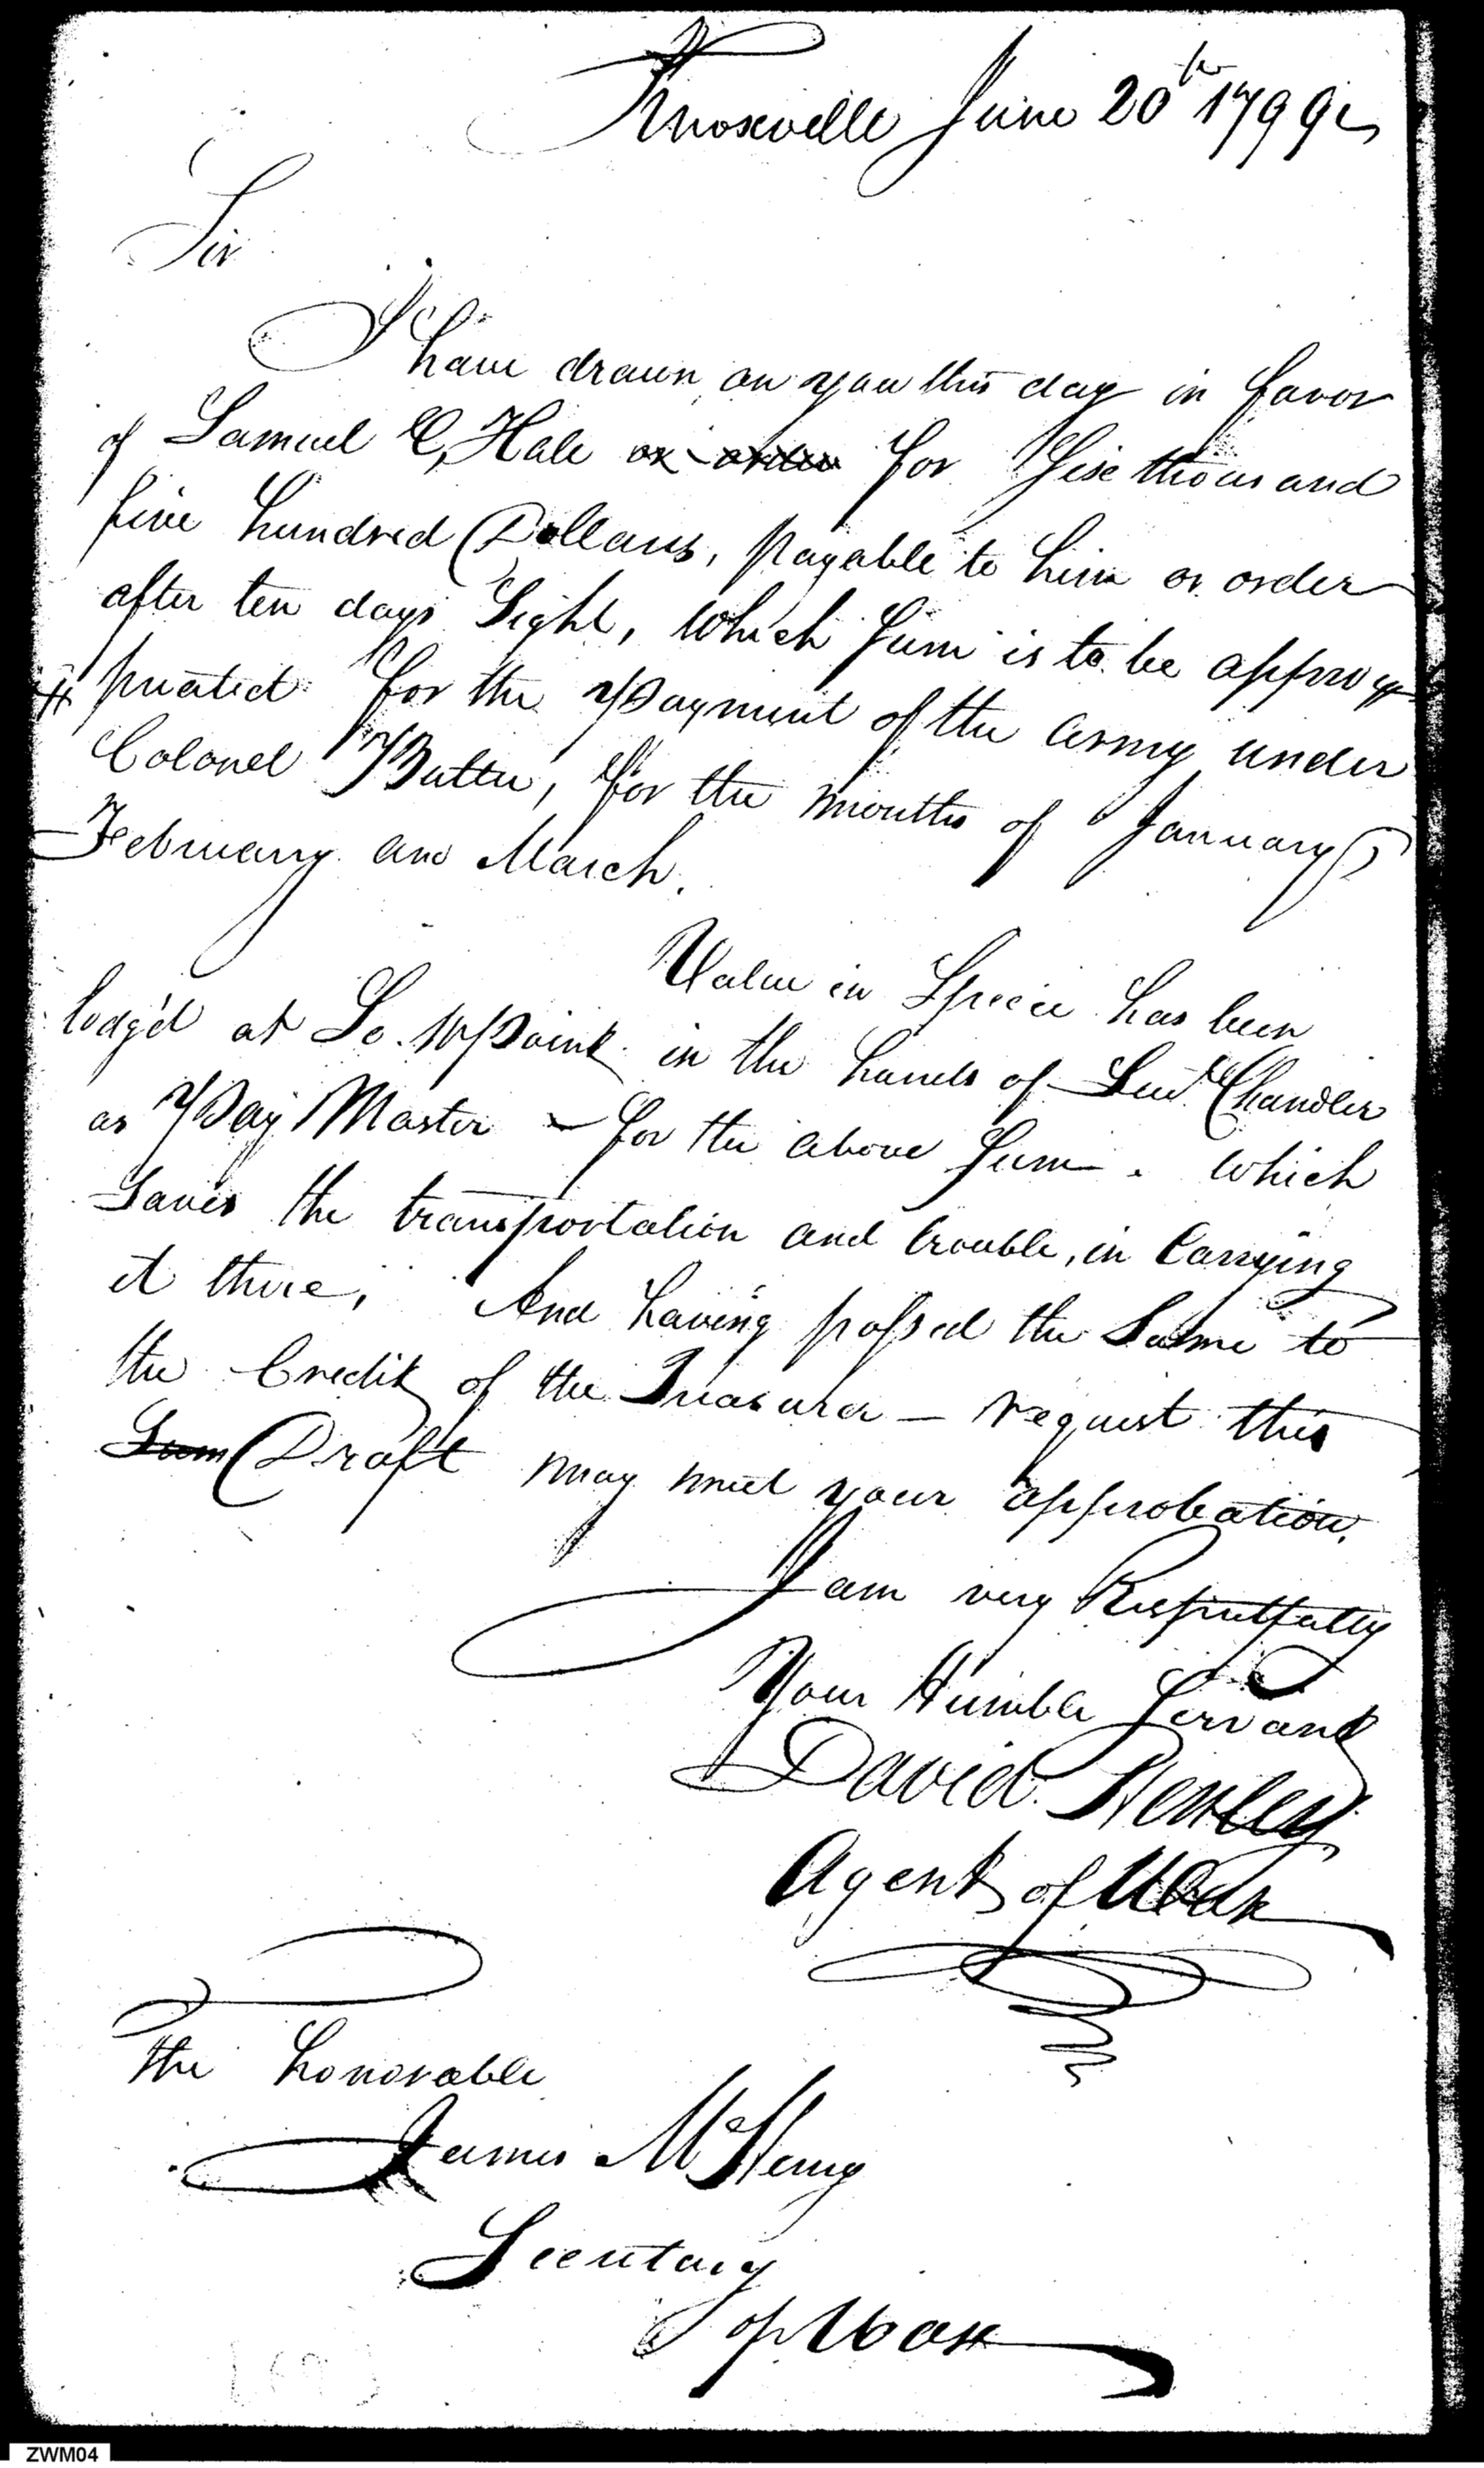 Knoxville June 20th 1799
Sir
I have drawn on you this day in favor
of Samuel C, Hale or order for Six thousand
five hundred Dollars, payable to him or order
after ten days Sight, which Sum is to be appro
priated for the Payment of the army under
Colonel Butler, for the months of January
February and March.
Value in Specie has been
lodg'd at So. W Point in the hands of Lieut. Chandler
as Pay Master - for the above Sum. which
Saves the transportation and trouble, in Carrying
it there, And having passed the Same to
the Credit of the Treasurer - request this
Sum Draft may meet your approbation.
I am very Respectfully
Your Humble Servant
David Henley
Agent of War
the honorable
James McHenry
Secretary
of War
ZWM04